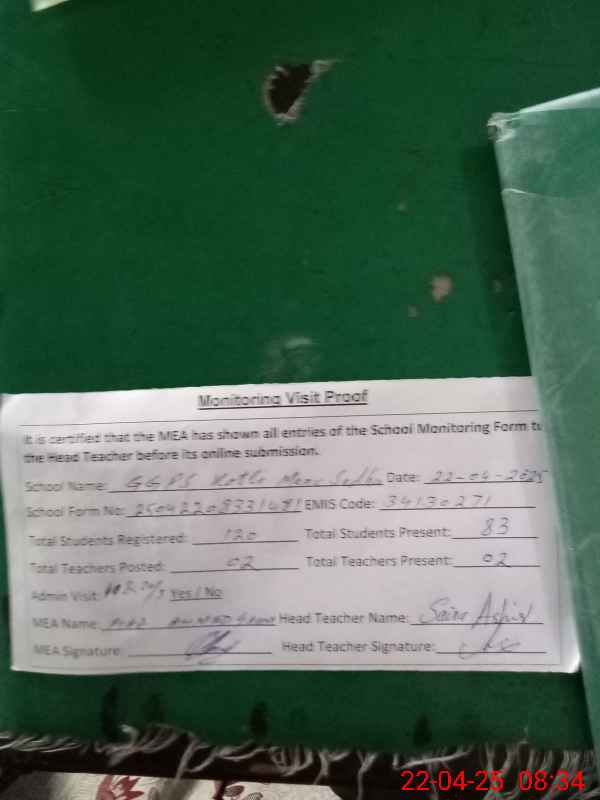 Monitoring Visit Proof
It is certified that the MEA has shown all entries of the School Monitoring Form to
the Head Teacher before its online submission.
School Name: GGPS Kotla Date: 22-04-2025
School Form No: 25042208331481 EMIS Code: 34130271
Total Students Registered: 120 Total Students Present: 83
Total Teachers Posted: 02 Total Teachers Present: 02
Admin Visit: Yes / No
MEA Name: AHMED Head Teacher Name: Saira
MEA Signature: Head Teacher Signature:
22-04-25 08:34